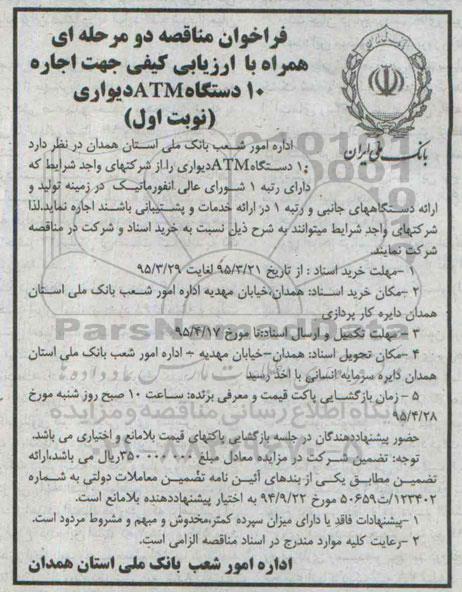 فراخوان مناقصه دو مرحله ای
همراه با ارزیابی کیفی جهت اجاره
۱۰ دستگاه ATM دیواری
(نوبت اول)
بانک ملی ایران
اداره امور شعب بانک ملی استان همدان در نظر دارد
۱۰ دستگاه ATM دیواری را از شرکتهای واجد شرایط که
دارای رتبه ۱ شورای عالی انفورماتیک در زمینه تولید و
ارائه دستگاههای جانبی و رتبه ۱ در ارائه خدمات و پشتیبانی باشند اجاره نماید.لذا
شرکتهای واجد شرایط میتوانند به شرح ذیل نسبت به خرید اسناد و شرکت در مناقصه
شرکت نمایند.
۱ -مهلت خرید اسناد : از تاریخ ۹۵/۳/۲۱ لغایت ۹۵/۳/۲۹
۲ -مکان خرید اسناد: همدان،خیابان مهدیه اداره امور شعب بانک ملی استان
همدان دایره کار پردازی
۳ -مهلت تکمیل و ارسال اسناد:تا مورخ ۹۵/۴/۱۷
۴ -مکان تحویل اسناد: همدان-خیابان مهدیه - اداره امور شعب بانک ملی استان
همدان دایره سرمایه انسانی با اخذ رسید
۵ - زمان بازگشایی پاکت قیمت و معرفی برنده: ساعت ۱۰ صبح روز شنبه مورخ
۹۵/۴/۲۸
حضور پیشنهاددهندگان در جلسه بازگشایی پاکتهای قیمت بلامانع و اختیاری می باشد.
توجه: تضمین شرکت در مزایده معادل مبلغ ۳۵۰۰۰۰۰۰۰ریال می باشد،ارائه
تضمین مطابق یکی از بندهای آئین نامه تضمین معاملات دولتی به شماره
۱۲۳۴۰۲/ت۵۰۶۵۹ مورخ ۹۴/۹/۲۲ به اختیار پیشنهاددهنده بلامانع است.
۱ -پیشنهادات فاقد یا دارای میزان سپرده کمتر،مخدوش و مبهم و مشروط مردود است.
۲ -رعایت کلیه موارد مندرج در اسناد مناقصه الزامی است.
اداره امور شعب بانک ملی استان همدان
ParsNamadData
پایگاه اطلاع رسانی مناقصه و مزایده